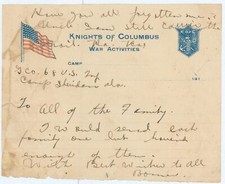 Have you all forgotten me?
Uncle Sam still carries the
mail. Ha Ha
KNIGHTS OF COLUMBUS
WAR ACTIVITIES
CAMP
191
Co. 68 U.S. Inf
Camp Sheridan Ala.
To All of the Family
I would send each
family one but haven't
enough of them
With Best Wishes to all